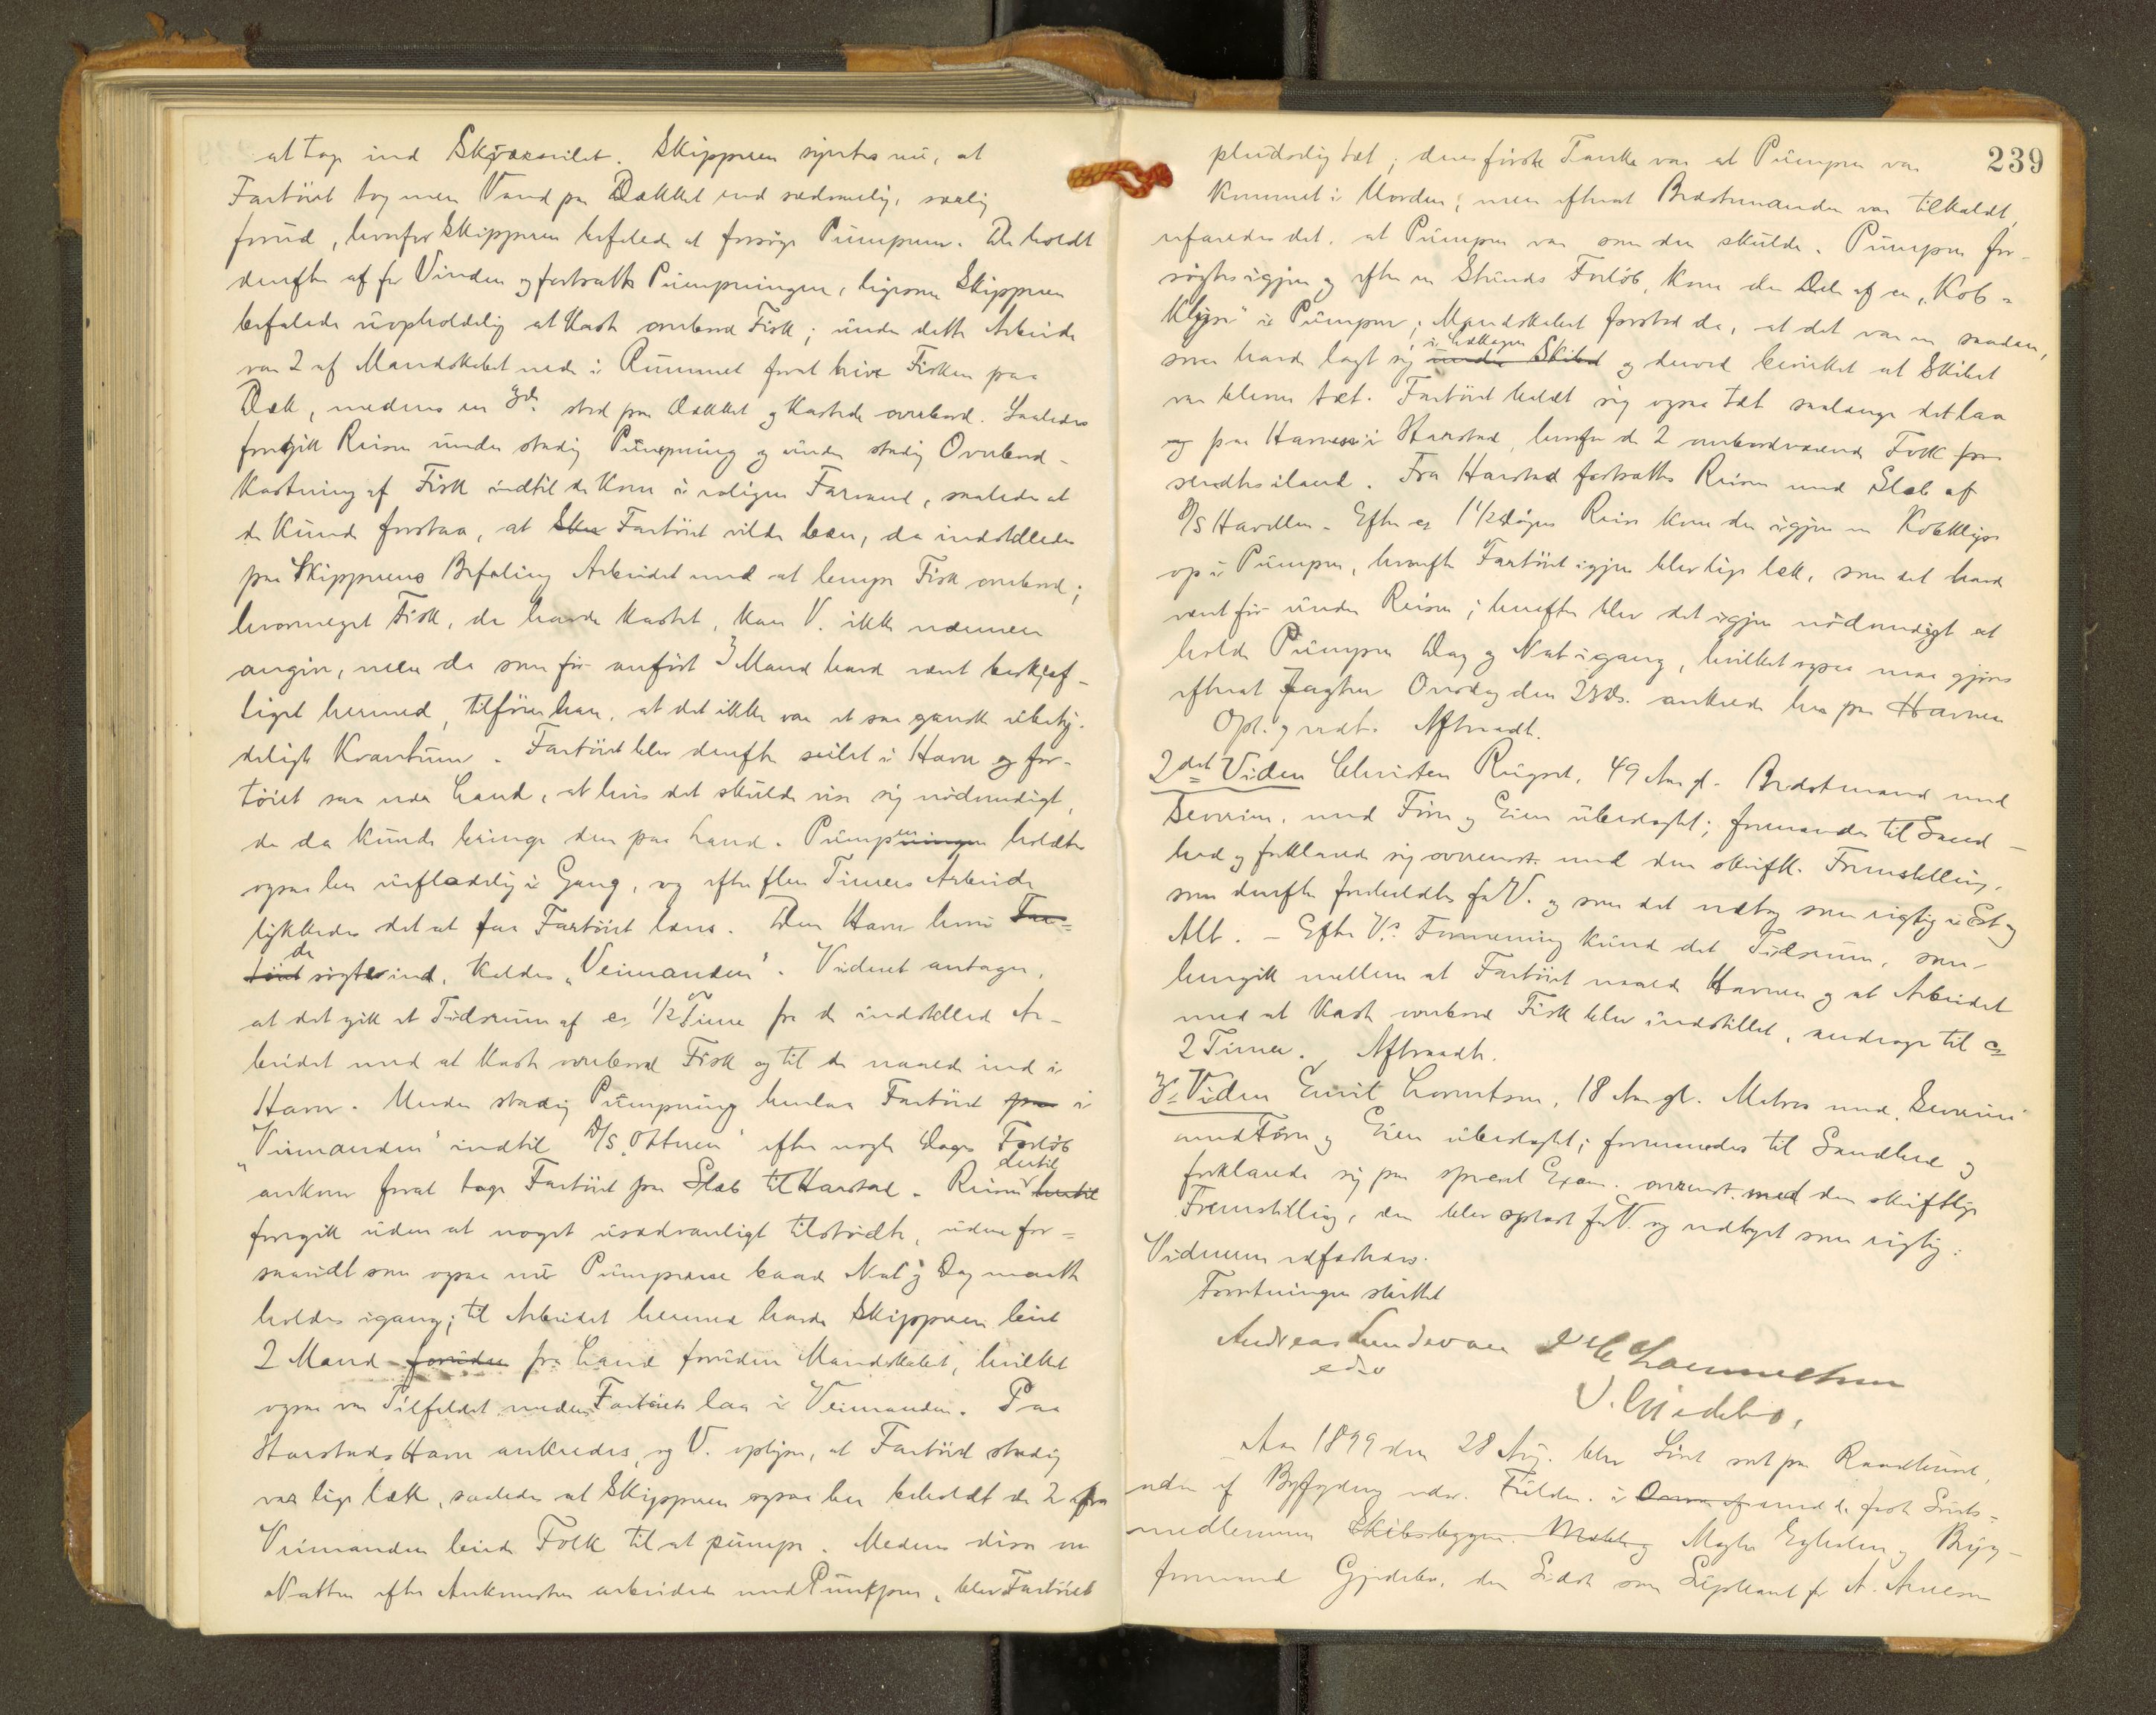 at tage ind Skjværseilet. Skipperen syntes nu, at
Fartöiet tog mere Vand paa Dækket end sædvanlig, særlig
forud, hvorfor Skipperen befalede at forsöge Pumperne. De holdt
derefter af for Vinden og fortsatte Pumpningen, ligesom Skipperen
befalede uopholdelig at kaste overbord Fisk; under dette Arbeide
var 2 af Mandskabet nede i Rummet forat hive Fisken paa
Dæk, medens en 3die stod paa Dækket og kastede overbord. Saaledes
foregik Reisen under stadig Pumpning og under stadig Overbord-
kastning af Fisk indtil de kom i roligere Farvand, saaledes at
de kunde forstaa, at Fartöiet vilde bære, da indstilledes
paa Skipperens Befaling Arbeidet med at lempe Fisk overbord;
hvormeget Fisk, de havde kastet, kan V. ikke nærmere
angive, men da som för anfört 3 Mand havde været beskjæf-
tiget hermed, tilföier han, at det ikke var et saa ganske ubety-
deligt Kvantum. Fartöiet blev derefter seilet i Havn og for-
töiet saa nær Land, at hvis det skulde vise sig nödvendigt,
de da kunde bringe den paa Land. Pumperne holdtes
ogsaa her uafladelig i Gang, og efter flere Timers Arbeide
lykkedes det at faa Fartöiet læns. Den Havn hvori Far-
töiet de sögte ind, kaldes „Veimanden". Vidnet antager,
at det gik et Tidsrum af ca 1/2 Time fra de indstillede Ar-
beidet med at kaste overbord Fisk og til de naaede ind i
Havn. Under stadig Pumpning henlaa Fartöiet paa i
„Veimanden" indtil D/S „Otteren" efter nogle Dages Forlöb
ankom forat tage Fartöiet paa Slæb til Harstad. Reisen dertil hertil
foregik uden at noget usædvanligt tilstödte, uden for-
saavidt som ogsaa nu Pumperne baade Nat og Dag maatte
holdes igang; til Arbeidet hermed havde Skipperen leiet
2 Mand foruden fra Land foruden Mandskabet, hvilket
ogsaa var Tilfældet medens Fartöiet laa i Veimanden. Paa
Harstads Havn ankredes, og V. oplyser, at Fartöiet stadig
var lige læk, saaledes at Skipperen ogsaa her beholdt de 2 fra
Veimanden leiede Folk til at pumpe. Medens disse om
Natten efter Ankomsten arbeidede med Pumpen, blev Fartöiet
239
pludselig tæt; deres förste Tanke var at Pumpen var
kommet i Uorden; men efterat Bedstemanden var tilkaldt,
erfaredes det, at Pumpen var som den skulde. Pumpen for-
sögtes igjen og efter en Stunds Forlöb, kom der Dele af en „Kob-
klyse" i Pumpen; Mandskabet forstod da, at det var en saadan,
som havde lagt sig i Lækagen under Skibet og derved bevirket at Skibet
var bleven tæt. Fartöiet holdt sig ogsaa tæt saalænge det laa
og paa Havnen i Harstad, hvorfor de 2 ombordværende Folk fra
sendtes iland. Fra Harstad fortsattes Reisen med Slæb af
D/S Havellen. Efter ca 1 1/2 Dögns Reise kom der igjen en Kobklyse
op i Pumpen, hvorefter Fartöiet igjen blev lige læk, som det havde
været för under Reisen; herefter blev det igjen nödvendigt at
holde Pumpen Dag og Nat igang, hvilket ogsaa maa gjöres
efterat Jagten Onsdag den 23ds. ankrede her paa Havnen
Opl. og vedt. Aftraadt.
2det Viden Christen 49 Aar gl. Bedstemand med
Severine, med Förer og Eier ubeslægtet; formanedes til Sand-
hed og forklarede sig overenst. med den skriftl. Fremstilling,
som derefter foreholdtes for V. og som det vedtog som rigtig i Et og
Alt. – Efter V.s Formening kunde det Tidsrum, som
hengik mellem at Fartöiet naaede Havnen og at Arbeidet
med at kaste overbord Fisk blev indstillet, andrage til ca
2 Timer. Aftraadt.
3die Viden Emil Lorentsen, 18 Aar gl. Matros med Severine
med Förer og Eier ubeslægtet; formanedes til Sandhed og
forklarede sig paa spec. Exam. overenst. med den skriftlige
Fremstilling, der blev oplæst for V. og vedtaget som rigtig.
Vidnerne edfæstedes.
Forretningen sluttet
Andreas Sundsvaag
edsv
J. Gjedebo,
Aar 1899 den 28 Aug. blev Söret sat paa Raadhuset,
under af Byfogden
medlemmer Skibsbygger og Mægler Egholm og Byg-
formand Gjedebo, den Sidste som Supleant for A. Arnesen